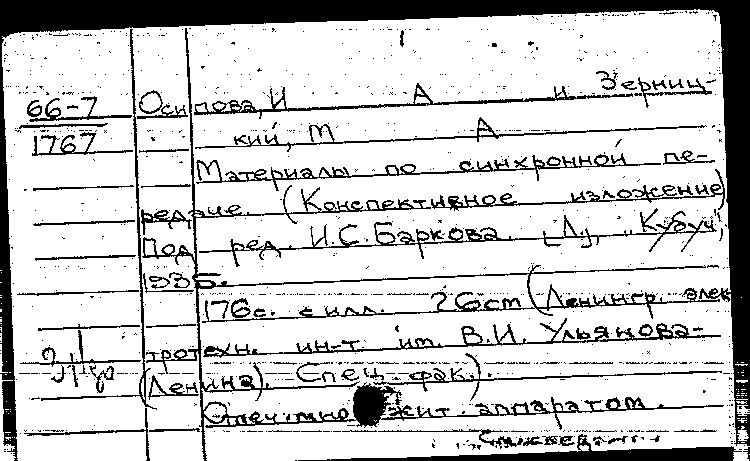 66-7
1767
Осипова, И А и Зерниц-
кий, М А
Материалы по синхронной пе-
редаче. (Конспективное изложение)
Под ред. И.С. Баркова. [Л], "Кубуч",
1935.
176с. с илл. 26см (Ленингр. элек
тротехн. ин-т им. В.И. Ульянова-
(Ленина). Спец. фак.).
Отпеч. множит. аппаратом.